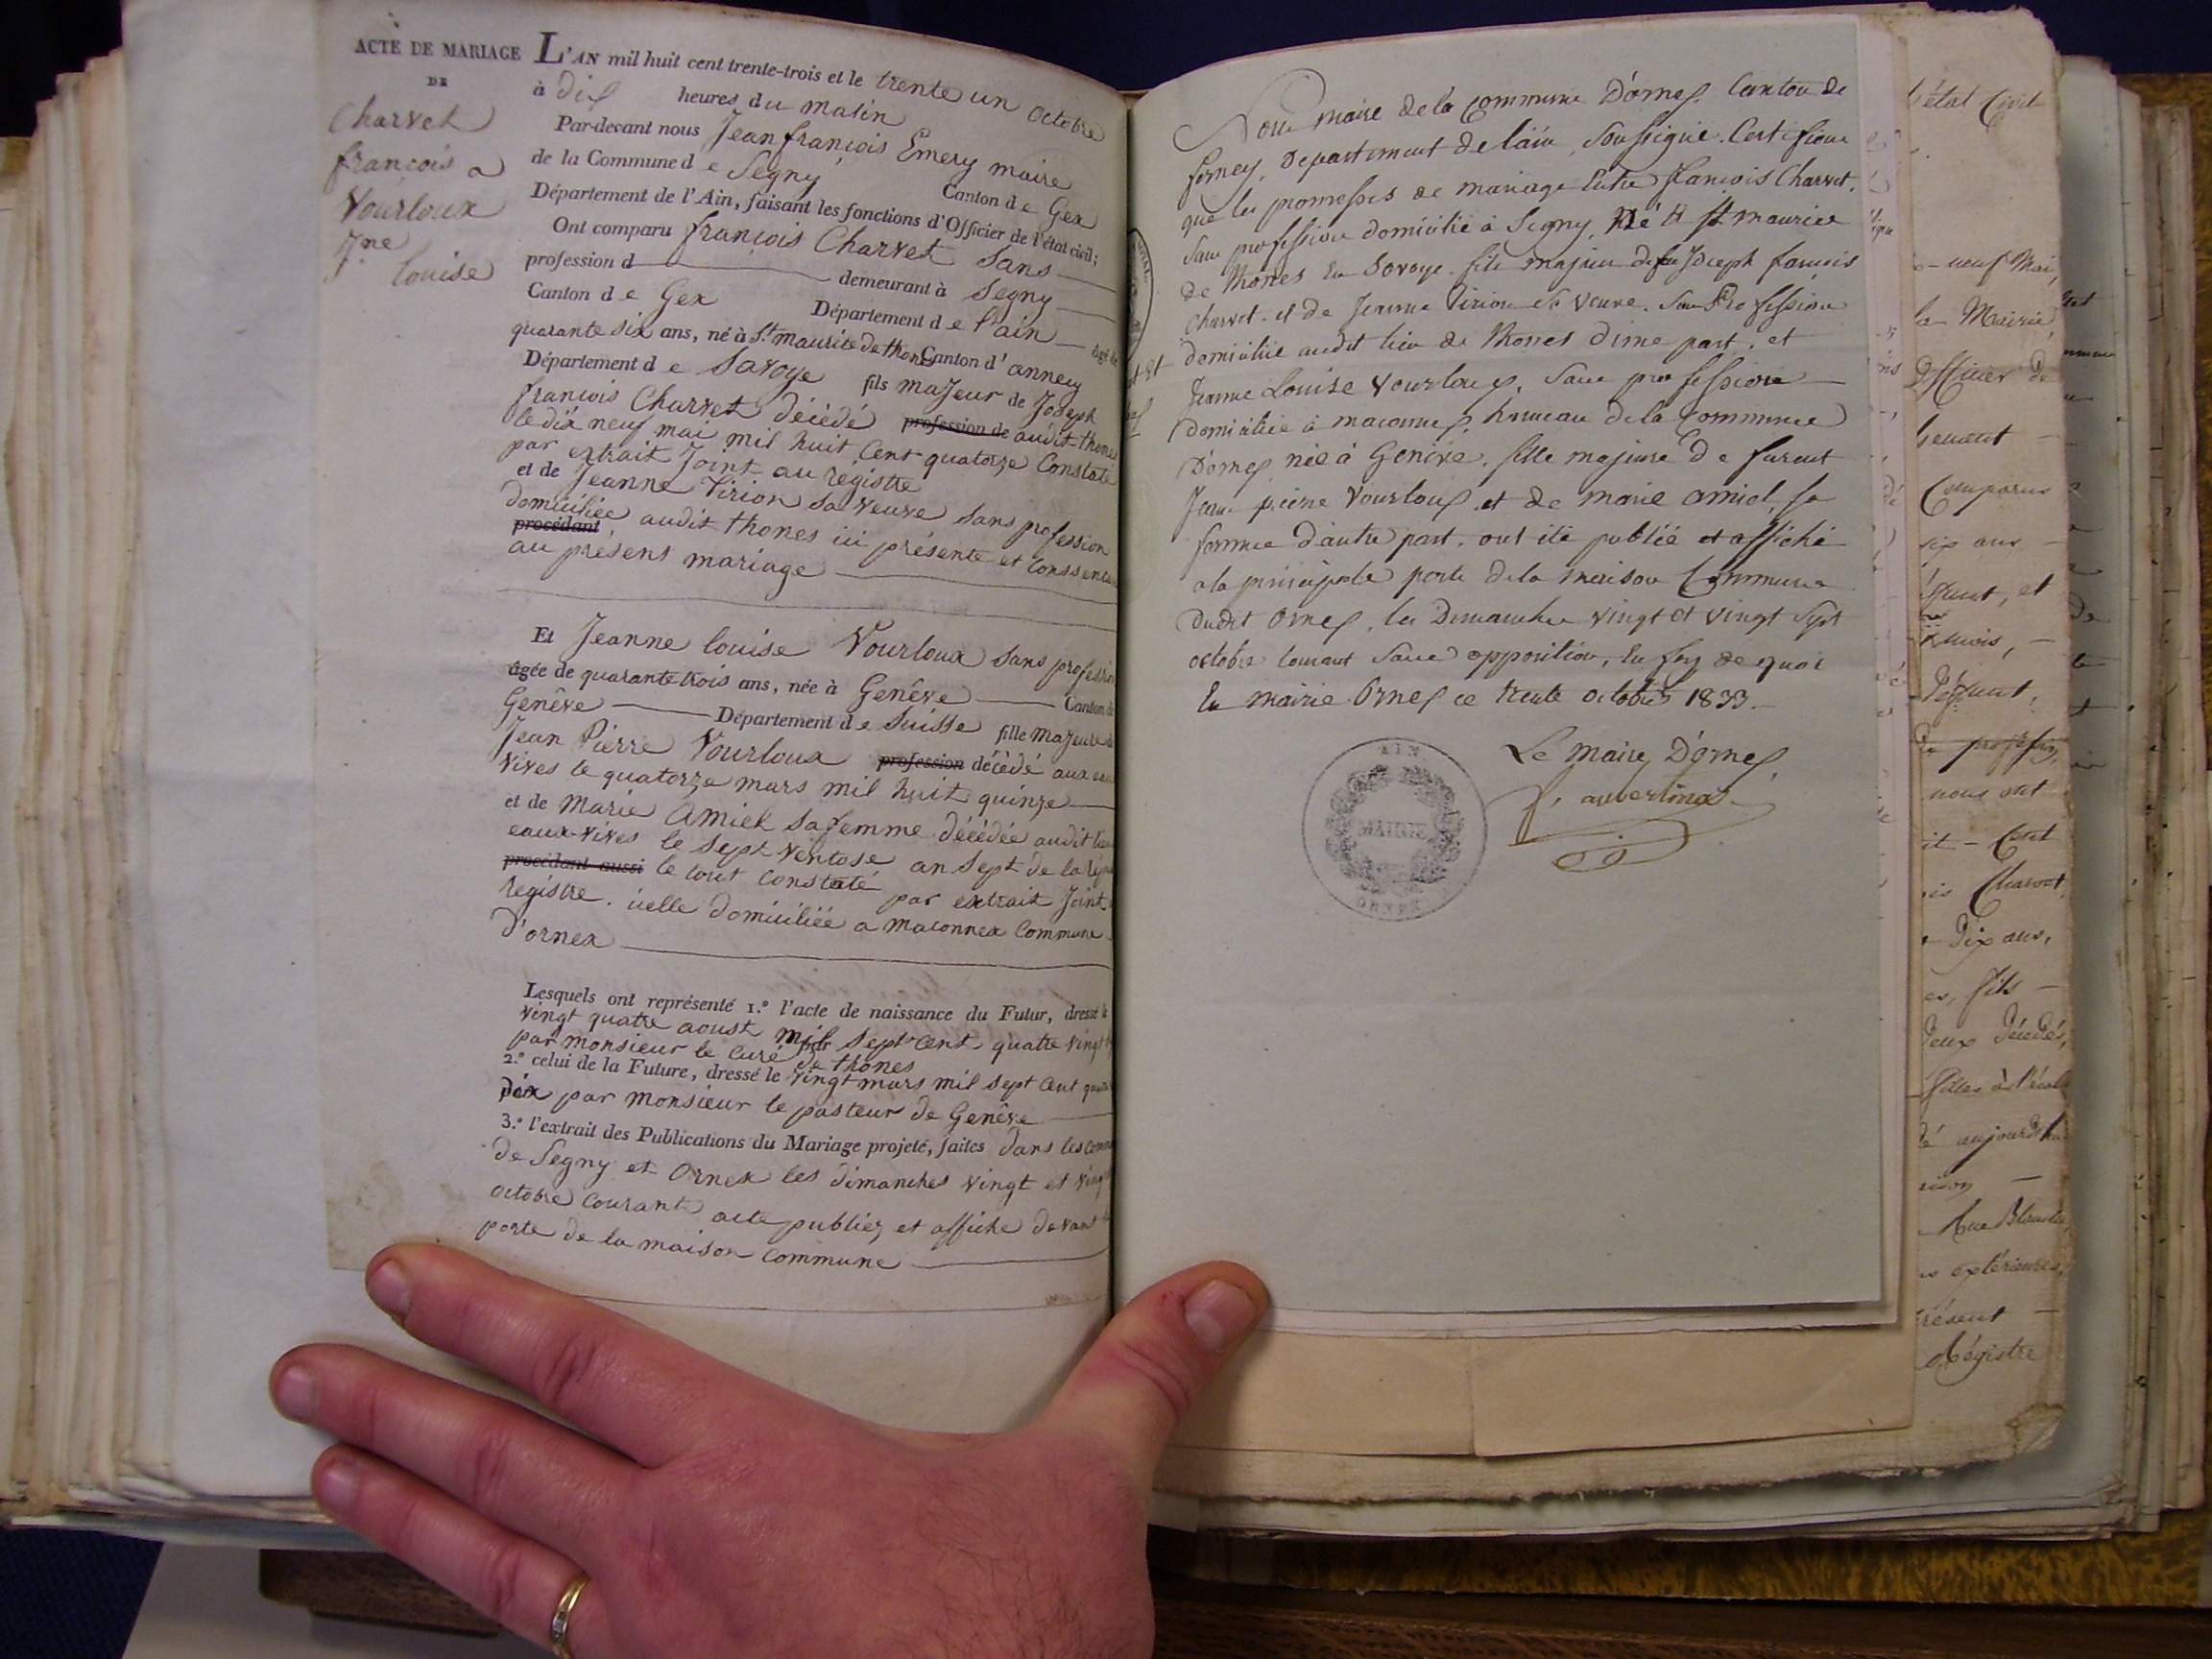 ACTE DE MARIAGE
DE
Charvet
françois a
Vourloux
Jne
louise
L'AN mil huit cent trente-trois et le trente un octobre
à dix heures du matin
Par-devant nous Jean françois Emery maire
de la Commune d e Segny Canton d e Gex
Département de l'Ain, faisant les fonctions d'Officier de l'état civil;
Ont comparu françois Charvet sans
profession d demeurant à Segny
Canton d e Gex Département d e l'ain âgé de
quarante six ans, né à St. maurice de thones Canton d' annecy
Département d e Savoye fils majeur de Joseph
francois Charvet décédé profession de audit thones
le dix neuf mai mil huit Cent quatorze Constaté
par extrait Joint au régistre
et de Jeanne Virion sa veuve sans profession
domiciliée audit thones ici présente et conssent
procédant
au présent mariage
Et Jeanne louise Vourloux sans profession
âgée de quarante trois ans, née à Genêve Canton d
Genêve Département d e Suisse fille majeure d
Jean Pierre Vourloux profession décédé aux eau
vives le quatorze mars mil huit quinze
et de Marie Amiek sa femme décédée audit lieu
eaux-vives le sept ventose an sept de la rép
procédant aussi le tout constaté par extrait Joint
registre. icelle domiciliée a maconnex Commune
d'ornex
Lesquels ont représenté 1.º l'acte de naissance du Futur, dressé le
vingt quatre aoust mil sept cent quatre vingt
par monsieur le curé de thones
2.º celui de la Future, dressé le vingt mars mil sept cent quat
dix par monsieur le pasteur de Genêve
3.º l'extrait des Publications du Mariage projeté, faites dans les comm
de Segny et Ornex les dimanches vingt et ving
octobre courant acte publiez et affiche devant
porte de la maison commune
Nous maire de la Commune D'ornex. Canton de
ferney, Departement de l'ain, Soussigné. Certifions
que les promesses de mariage Entre françois Charvet.
Sans profession domicilié à Segny, Né A St maurice
de Thônes En Savoye. fils majeur de feu Joseph francois
Charvet. et de Jeanne Virion Sa veuve. Sans Profession
domiciliée audit lieu de Thones d'une part. et
Jeanne Louise Vourloux, Sans profession
domiciliée à maconnex, hameau de la Commune
D'ornex née à Genève. fille majeure De furent
Jean pierre Vourloux, et de marie amiel, sa
femme d'autre part. ont été publié et affiché
a la principale porte de la maison Commune
dudit Ornex, les Dimanches vingt et vingt Sept
octobre Courant Sans opposition, En foy de quoi
En mairie Ornex ce trente octobre 1833.
Le maire D'ornex,
AIN
MAIRIE
ORNEX
l'état Civil
neuf Mai,
la Mairie,
Officier de
Comparus
six ans
et
mois,
Défunt,
nous ont
it - Cent
Charvet,
Dix ans,
es, fils
Deux Décédés,
aujourd'hui
Rue
extérieures,
résent
Régistre